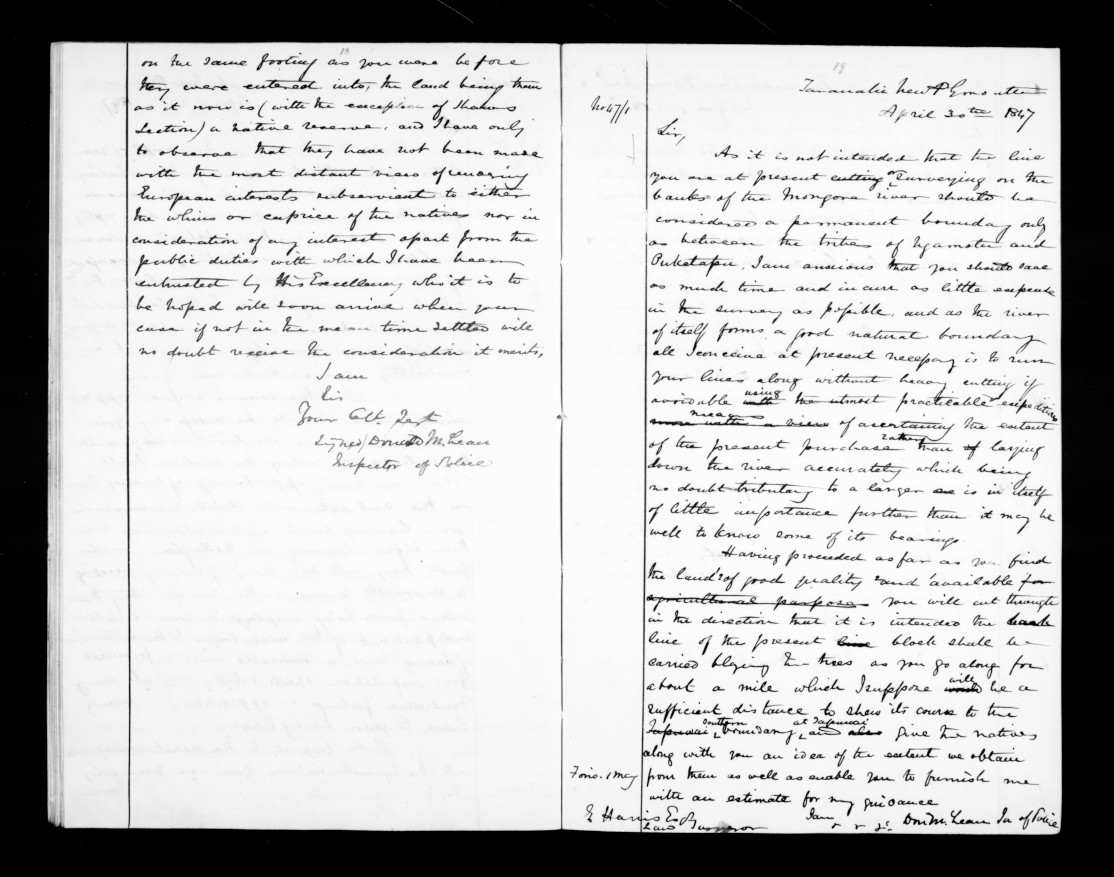 18
on the same footing as you were before
they were entered into, the land being then
as it now is (with the exception of Shaws
Section) a native reserve, and I have only
to observe that they have not been made
with the most distant view of rendering
European interests subservient to either
the whims or caprice of the natives nor in
consideration of any interest apart from the
public duties with which I have been
entrusted by His Excellency who it is to
be hoped will soon arrive when your
case if not in the mean time settled will
no doubt receive the consideration it merits,
I am
Sir
Your Obt. Sert
Signed/ Donald McLean
Inspector of Police
19
Taranaki New P
No 47/1
April 30th 1847
Sir,
As it is not intended that the line
you are at present cutting or Surveying on the
banks of the Mongora river should be
considered a permanent boundary only
as between the tribes of Ngamotu and
Puketapu, I am anxious that you should save
as much time and incur as little expense
in the survey as possible, and as the river
of itself forms a good natural boundary
all I conceive at present necessary is to run
your lines along without heavy cutting if
avoidable using with the utmost practicable expedition
means more with a view of ascertaining the extent
of the present purchase rather than of laying
down the river accurately which being
no doubt tributary to a larger one is in itself
of little importance further than it may be
well to know some of its bearings.
Having proceeded as far as you find
the land of good quality and available for
agricultural purposes you will cut through
in the direction that it is intended the back
line of the present line block shall be
carried blazing the trees as you go along for
about a mile which I suppose will would be a
sufficient distance to shew its course to the
Tapuwai southern boundary at Tapuwai and also give the natives
along with you an idea of the extent we obtain
from them as well as enable you to furnish me
with an estimate for my guidance
I am
Don McLean In of Police
1 May
E Harris Esqr
Land Surveyor